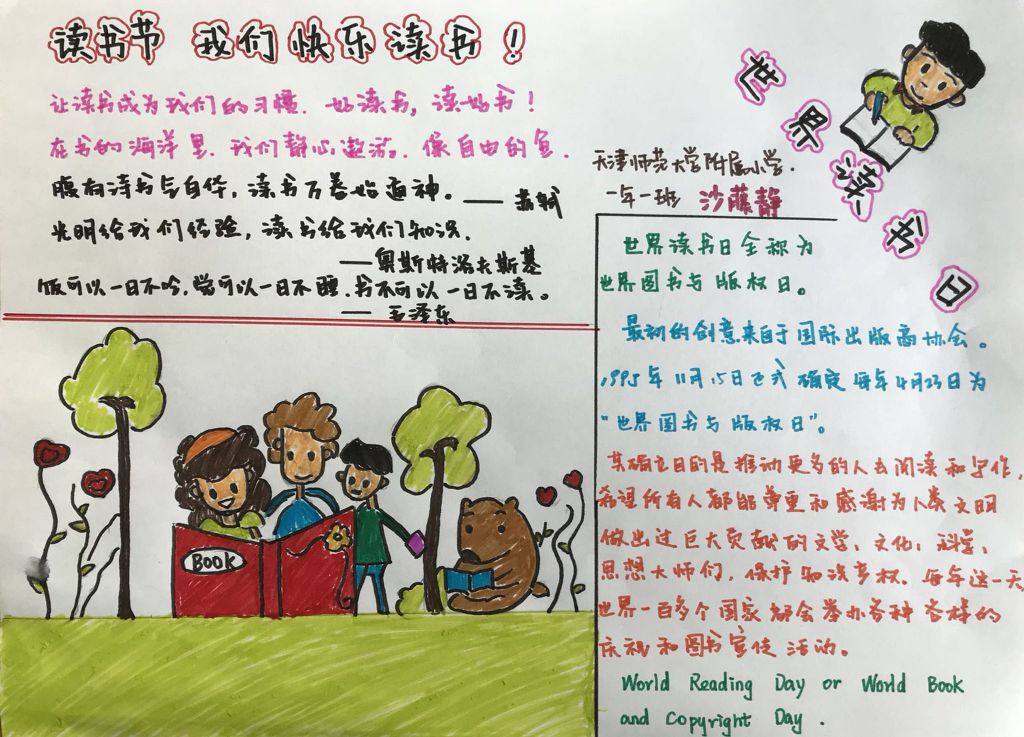 读书节 我们快乐读书！
让读书成为我们的习惯.好读书,读好书！
在书的海洋里.我们静心遨游.像自由的鱼.
腹有诗书气自华,读书万卷始通神。——苏轼
光明给我们经验,读书给我们知识.
——奥斯特洛夫斯基
饭可以一日不吃,觉可以一日不睡.书不可以一日不读。
——毛泽东
BOOK
世界读书日
天津师范大学附属小学.
一年一班 沙藤静
世界读书日全称为
世界图书与版权日。
最初的创意来自于国际出版商协会。
1995年11月15日正式确定每年4月23日为
“世界图书与版权日”。
其确立目的是推动更多的人去阅读和写作,
希望所有人都能尊重和感谢为人类文明
做出过巨大贡献的文学、文化、科学、
思想大师们,保护知识产权.每年这一天,
世界一百多个国家都会举办各种各样的
庆祝和图书宣传活动。
World Reading Day or World Book
and Copyright Day .